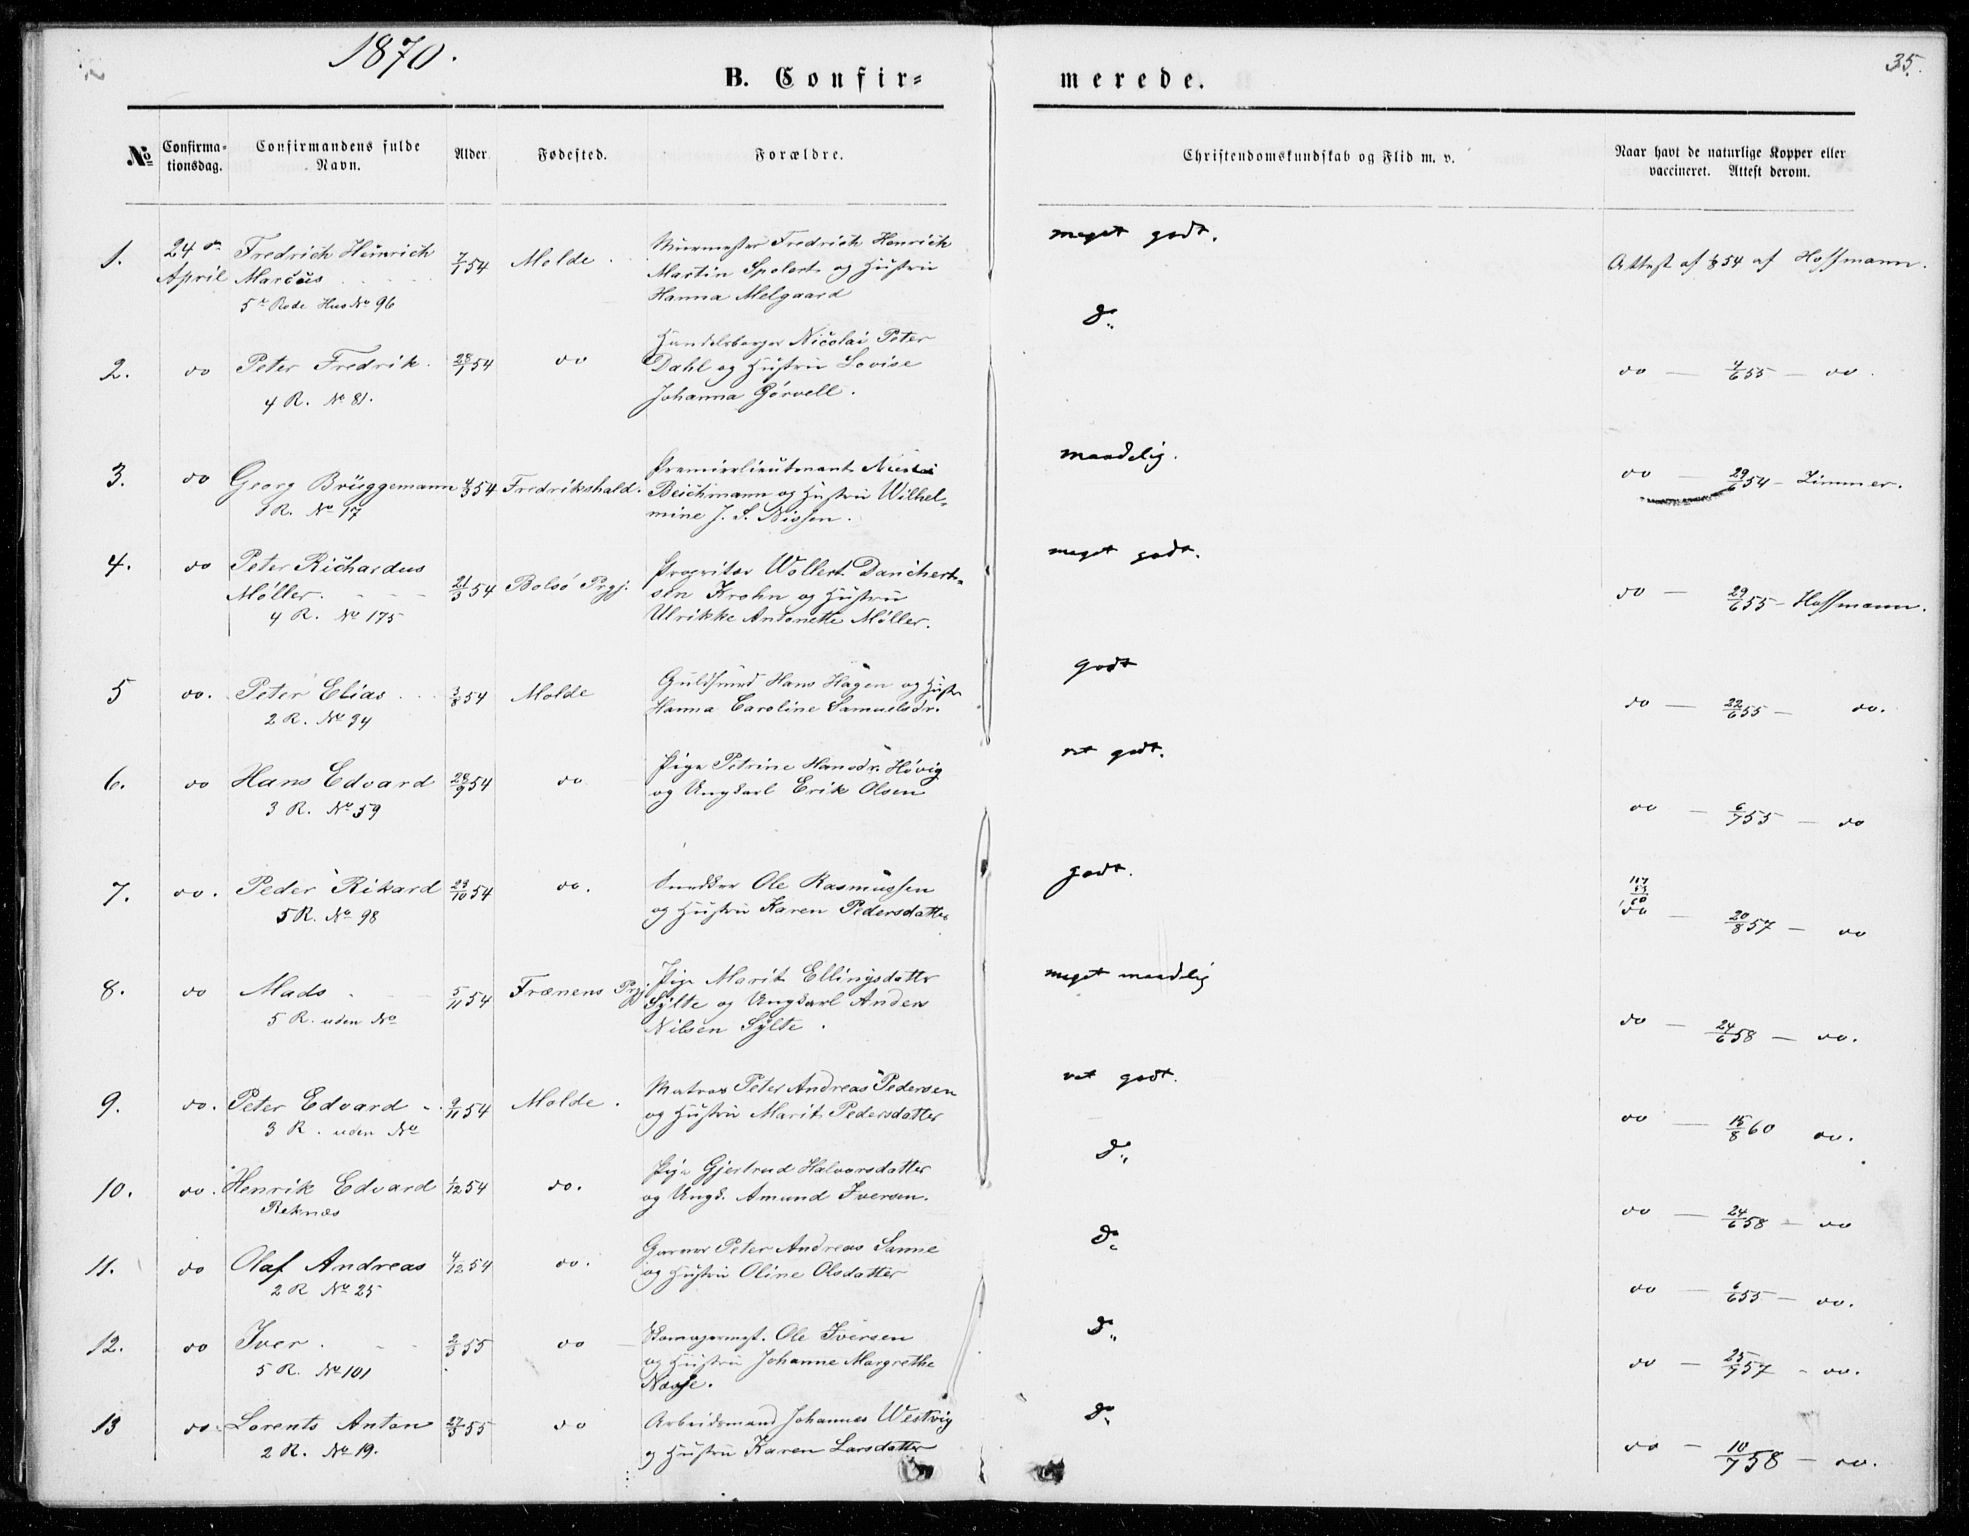 1870.
35.
B. Confir=
merede.
No
Confirma=
tionsdag.
Confirmandens fulde
Navn.
Alder
Fødested.
Forældre.
Christendomskundskab og Flid m. v.
Naar havt de naturlige Kopper eller
vaccineret. Attest derom.
1. 24de Fredrich Hinrich 7/1 54 Molde. Muurmester Fredrich Henrich meget godt. Attest af 54 af Hoffmann.
April Marcus Martin Spolert og Hustru
5te Rode Hus No 96 Hanna Melgaard
2. do Peter Fredrik. 28/1 54 do Handelsborger Nicolai Peter do do — 4/6 55 — do.
Dahl og Hustru Lovise
4 R. No 81. Johanna Gørvell.
3. do Georg Brüggemann 4/3 54 Fredrikshald. Premierlieutenant Nicolai maadelig. do — 29/6 54 — Zimmer.
3 R. No 17 Beichmann og Hustru Wilhel-
mine J. S. Nissen.
4. do Peter Richardus 21/3 54 Bolsø Prgj. Proprietær Wollert Danchert- meget godt. do — 29/6 55 — Hoffmann.
Møller. sen Krohn og Hustru
4 R. No 175 Ulrikke Antonette Møller.
5 do. Peter Elias 3/8 54 Molde Guldsmed Hans Hagen og Hustr godt do — 22/6 55 — do.
2 R. No 34 Hanna Caroline Samuelsdr.
6. do Hans Edvard 28/9 54 do Pige Petrine Hansdr. Høvig ret godt. do — 6/7 55 — do
3 R. No 59 og Ungkarl Erik Olsen
7. do. Peder Rikard 29/10 54 do. Snedker Ole Rasmussen godt. do — 20/8 57 — do
5 R. No 98 og Hustru Karen Pedersdatter
8. do Mads 5/11 54 Frænens Prgj. Pige Marit Ellingsdatter meget maadelig do — 24/6 58 — do.
5 R. uden No Sylte og Ungkarl Anders
Nilsen Sylte.
9. do. Peter Edvard 9/11 54 Molde. Matros Peter Andreas Pedersen ret godt. do — 15/8 60 do.
3 R. uden No og Hustru Marit Pedersdatter
10. do. Henrik Edvard 1/12 54 do. Pige Gjertrud Halvorsdatter do do — 24/6 58 — do
Reknæs og Ungk. Amund Iversen.
11. do Olaf Andreas 4/12 54 do. Garver Peter Andreas Sanne do do — 6/6 55 — do.
2 R No 25 og Hustru Oline Olsdatter
12. do Iver. 2/3 55 do Skomagermst. Ole Iversen do do — 25/9 57 — do.
5 R. No 101 og Hustru Johanne Margrethe
Næsje.
13 do. Lorents Anton 27/3 55 do Arbeidsmand Johannes Westvig do do — 10/7 58 — do.
2 R. No 19. og Hustru Karen Larsdatter